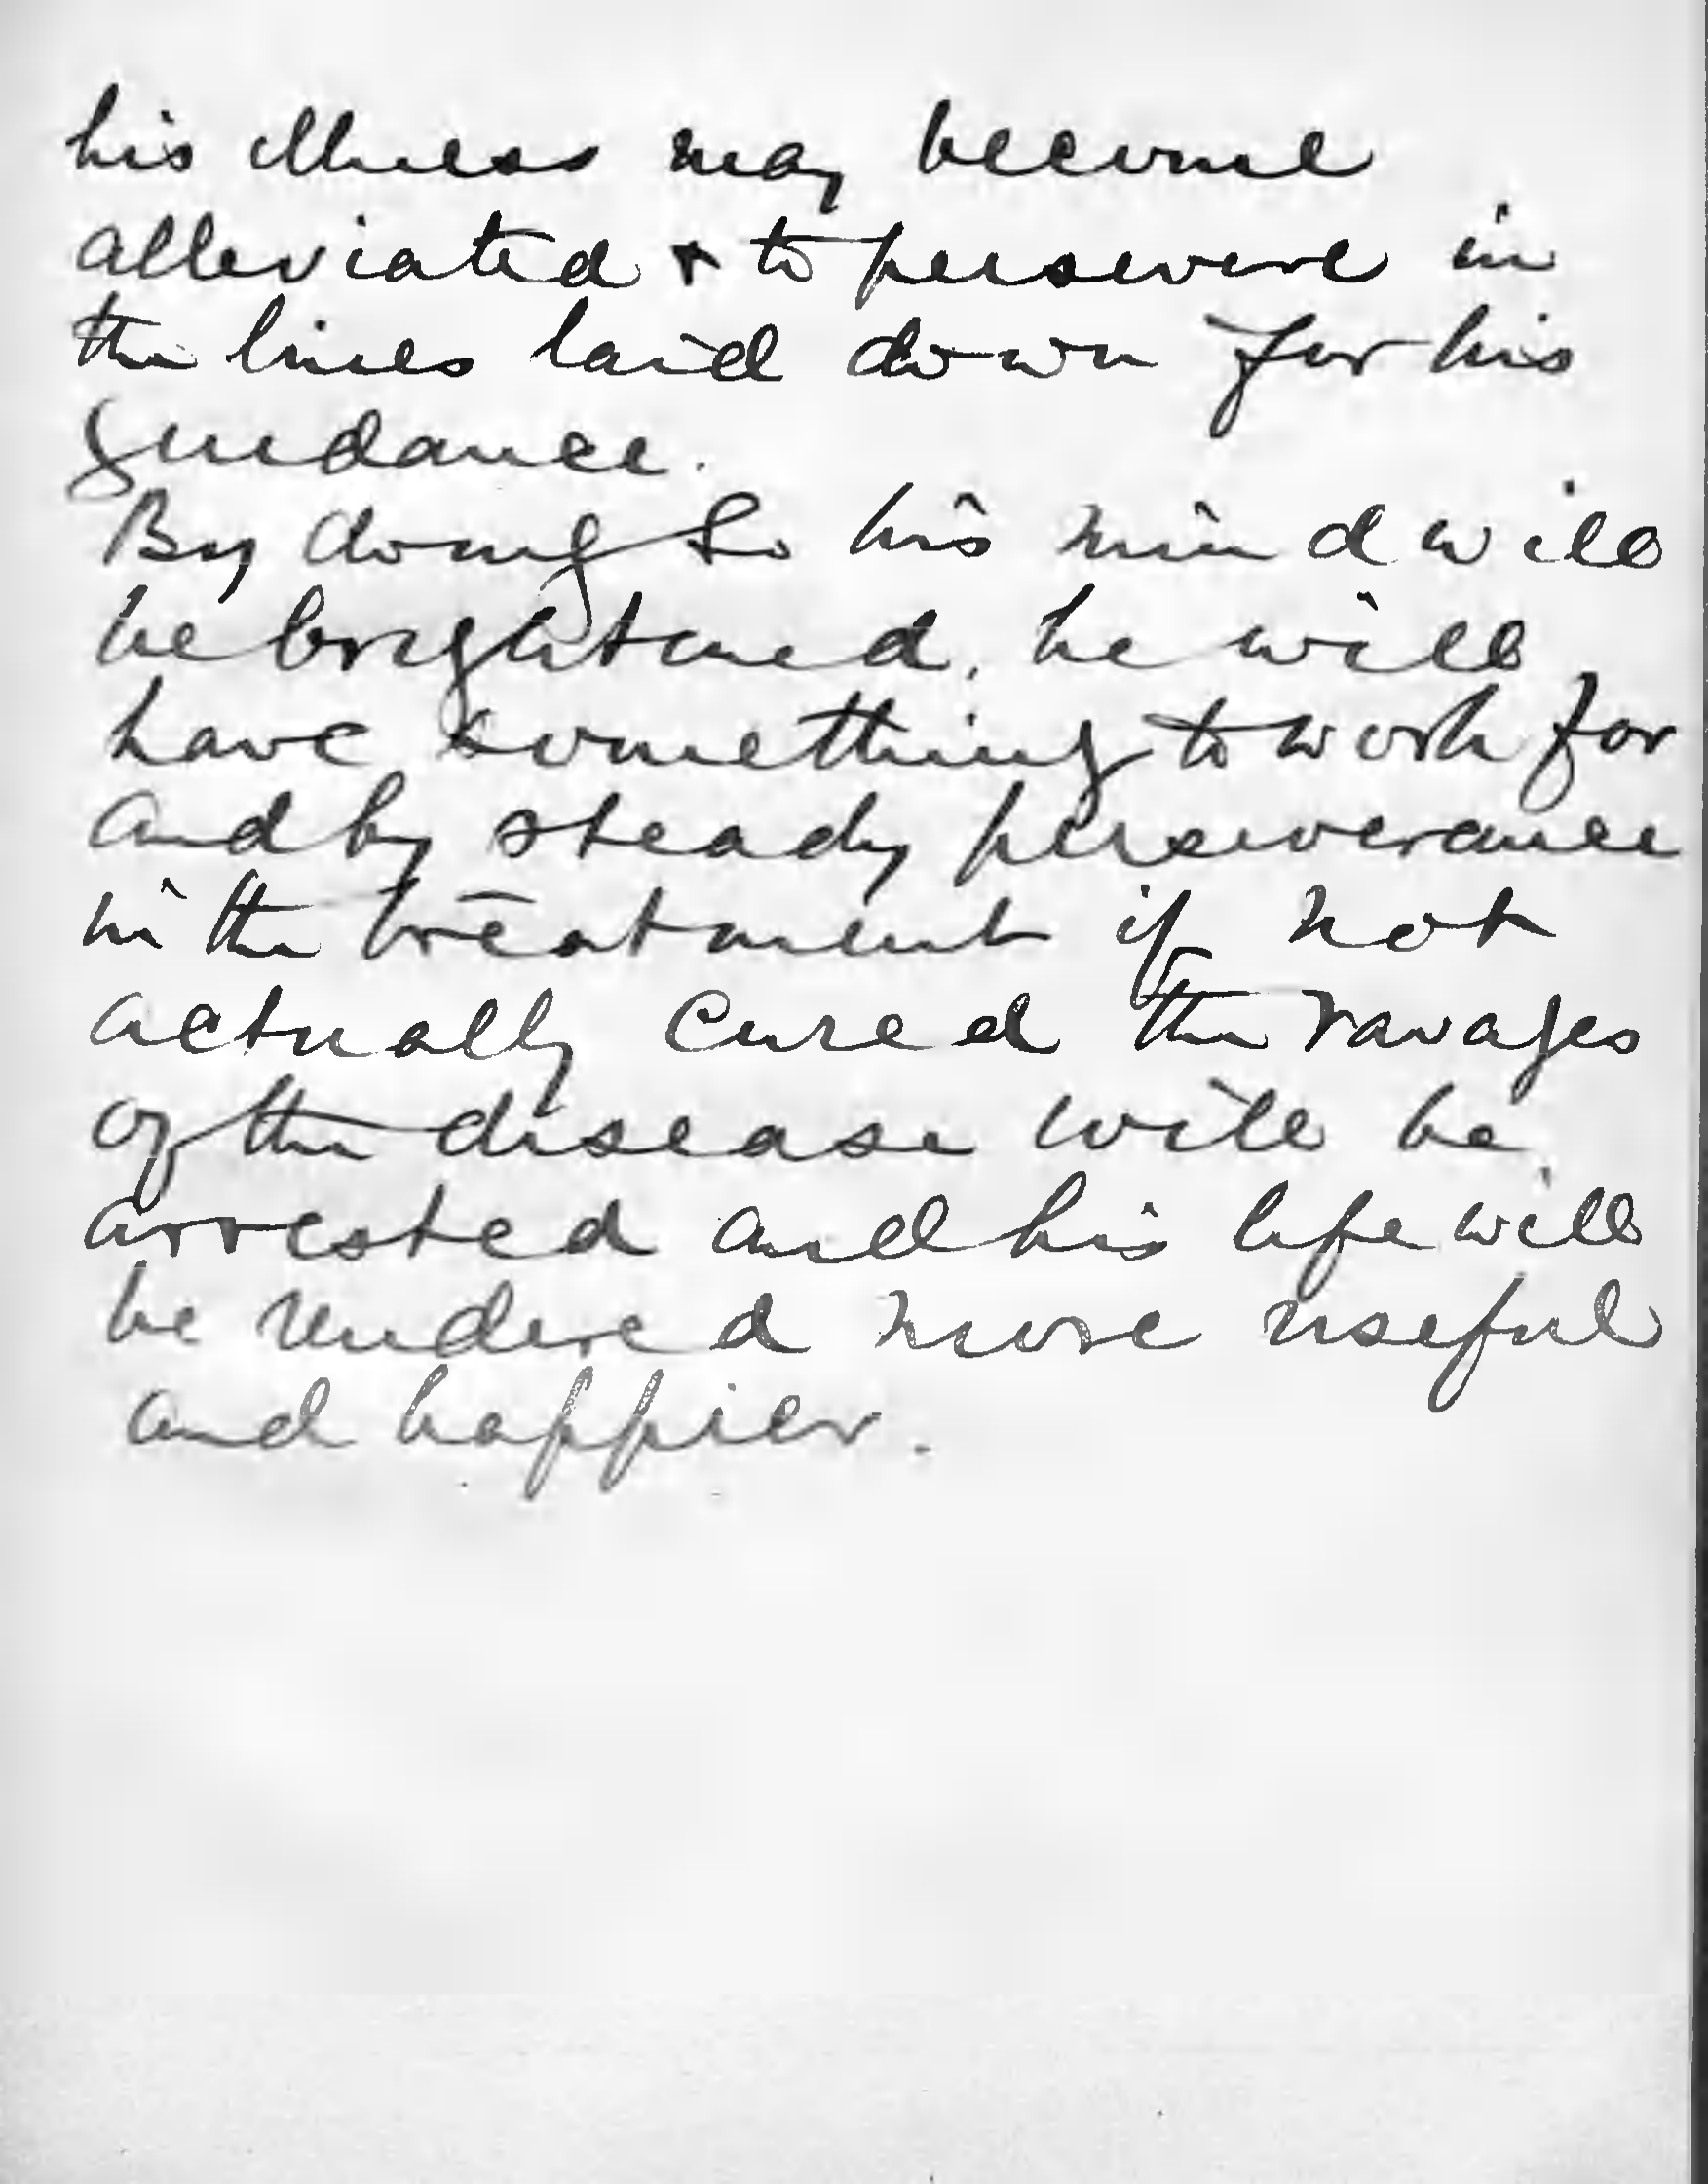 his illness may become
alleviated & to persevere in
the lines laid down for his
guidance.
By doing so his mind will
be brightened, he will
have something to work for
and by steady perseverance
in the treatment if not
actually cured the ravages
of the disease will be
arrested and his life will
be rendered more useful
and happier.